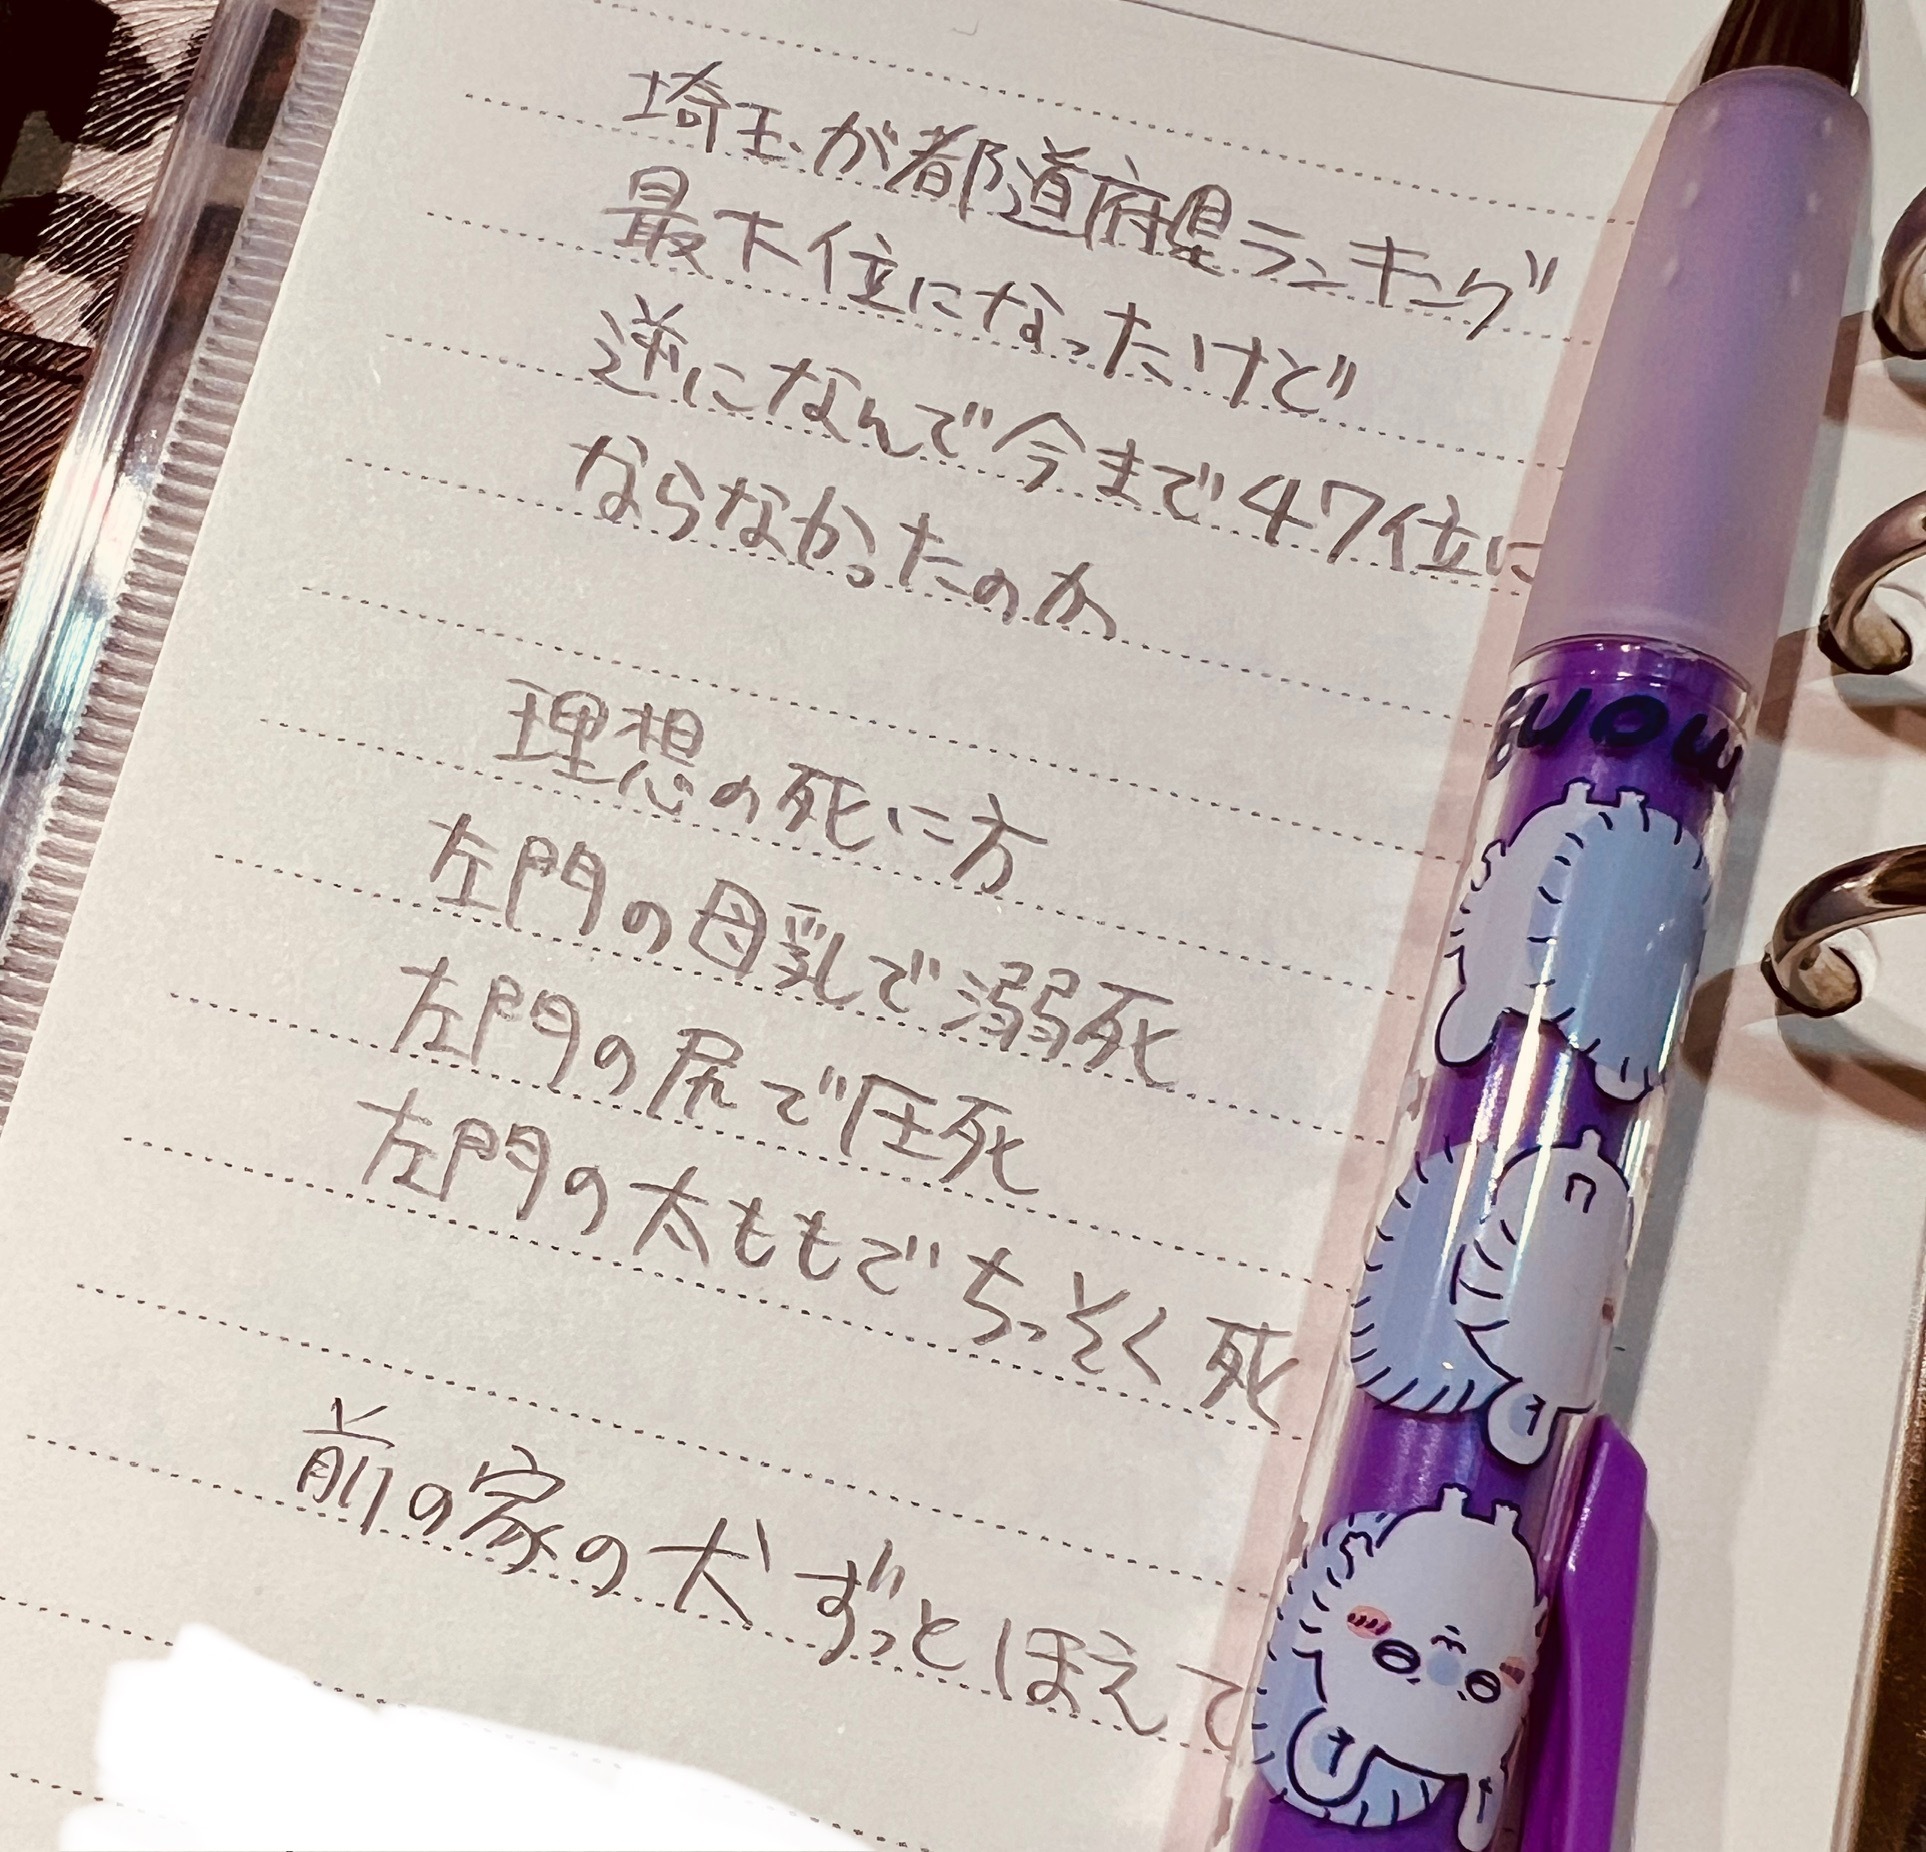 埼玉が都道府県ランキング
最下位になったけど
逆になんで今まで47位に
ならなかったのか
理想の死に方
左門の母乳で溺死
左門の尻で圧死
左門の太ももでちっそく死
前の家の犬ずっとほえて